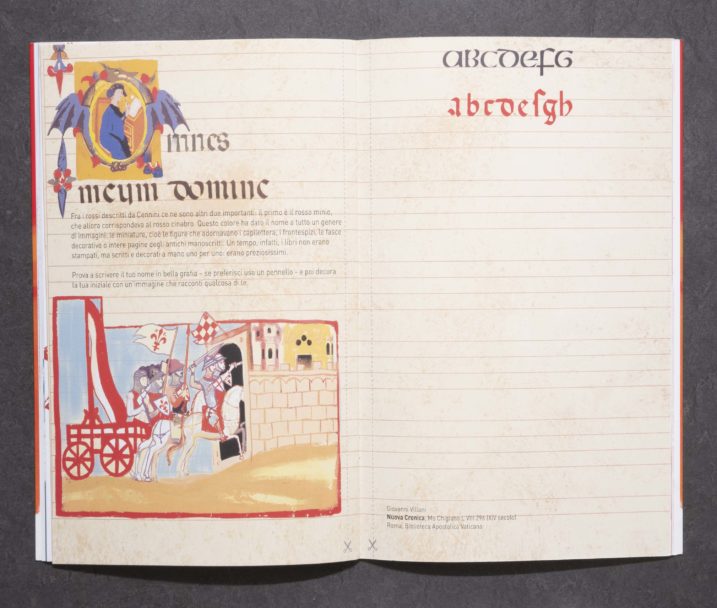 Omnes
meum domine
Fra i rossi descritti da Cennini ce ne sono altri due importanti: il primo è il rosso minio,
che allora corrispondeva al rosso cinabro. Questo colore ha dato il nome a tutto un genere
di immagini, le miniature, cioè le figure che adornavano i capilettera, i frontespizi, le fasce
decorative o intere pagine degli antichi manoscritti. Un tempo, infatti, i libri non erano
stampati, ma scritti e decorati a mano uno per uno: erano preziosissimi.
Prova a scrivere il tuo nome in bella grafia – se preferisci usa un pennello – e poi decora
la tua iniziale con un'immagine che racconti qualcosa di te.
ABCDEFG
abcdefgh
Giovanni Villani
Nuova Cronica, Ms Chigiano L VIII 296 (XIV secolo)
Roma, Biblioteca Apostolica Vaticana